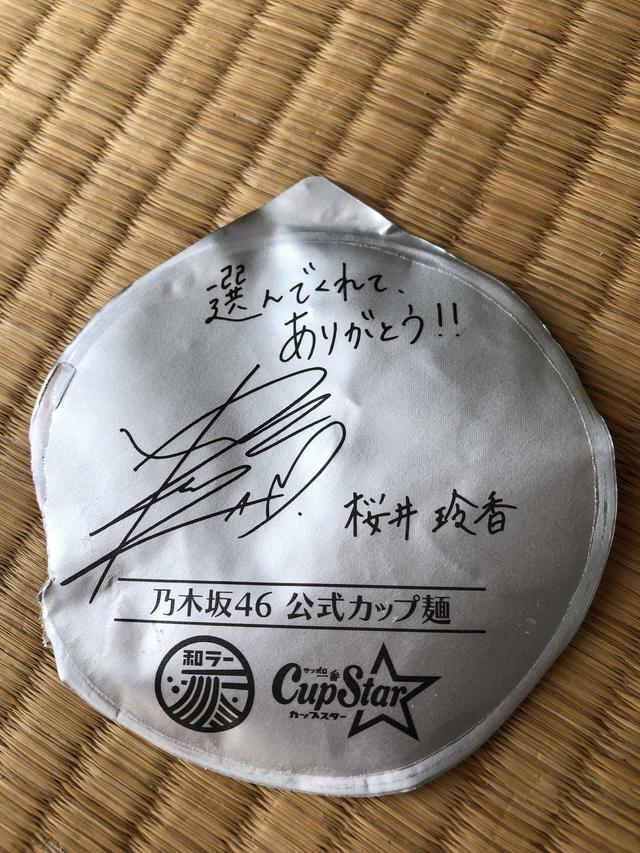 選んでくれて、
ありがとう!!
桜井玲香
乃木坂46 公式カップ麺
和ラー
サッポロ一番
CupStar
カップスター